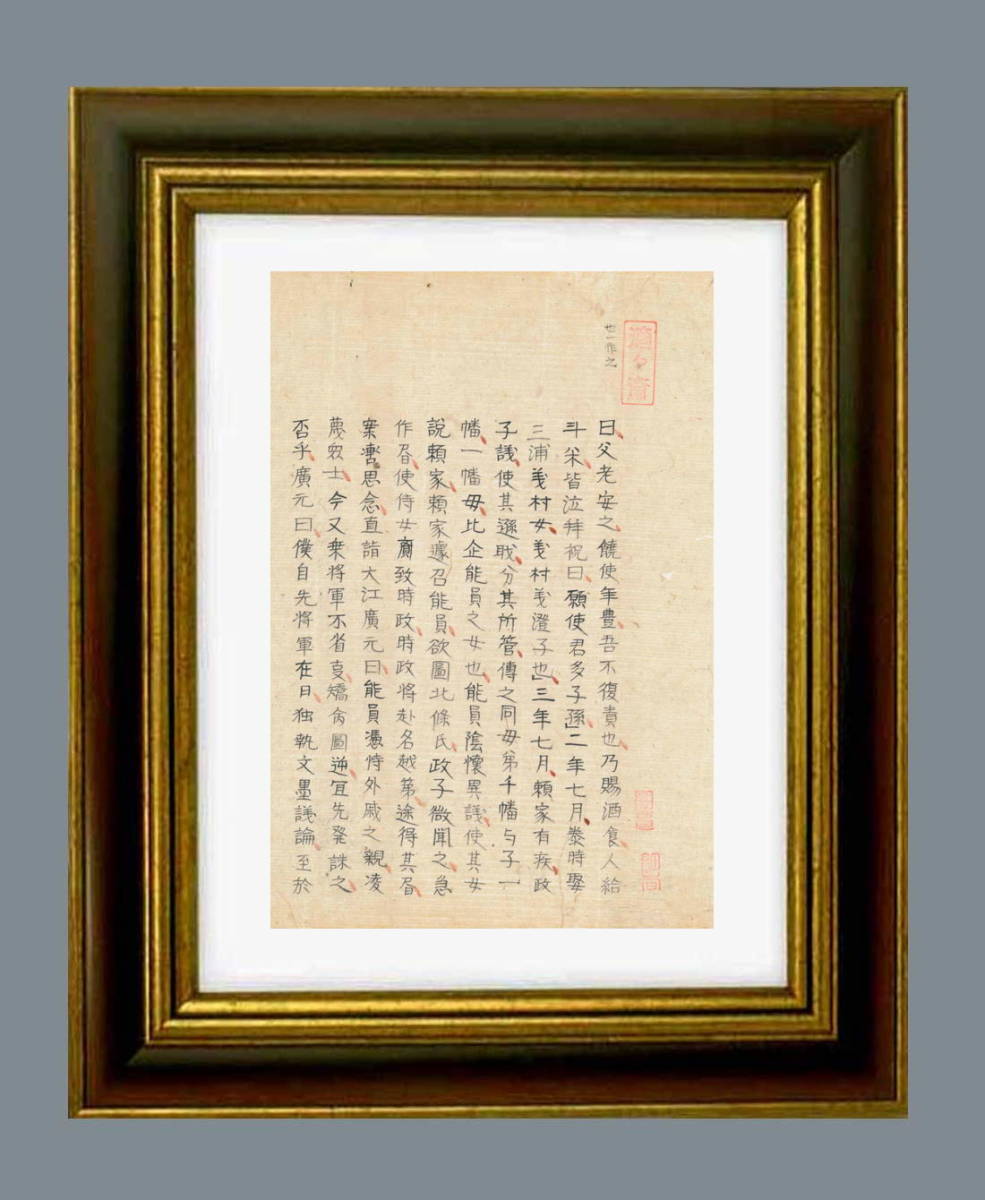 世一作之
曰父老安之饒使年豊吾不復責也乃賜酒食人給
斗米皆泣拜祝曰願使君多子孫二年七月泰時娶
三浦義村女義村義澄子也三年七月頼家有疾政
子議使其遜職分其所管傳之同母弟千幡与子一
幡一幡母比企能員之女也能員陰懷異議使其女
說頼家頼家遽召能員欲圖北條氏政子微聞之急
作書使侍女齎致時政時政將赴名越第途得其書
案轡思念直詣大江廣元曰能員憑恃外戚之親凌
蔑衆士今又乗将軍不省事矯命圖逆宜先発誅之
否乎廣元曰僕自先将軍在日独執文墨議論至於